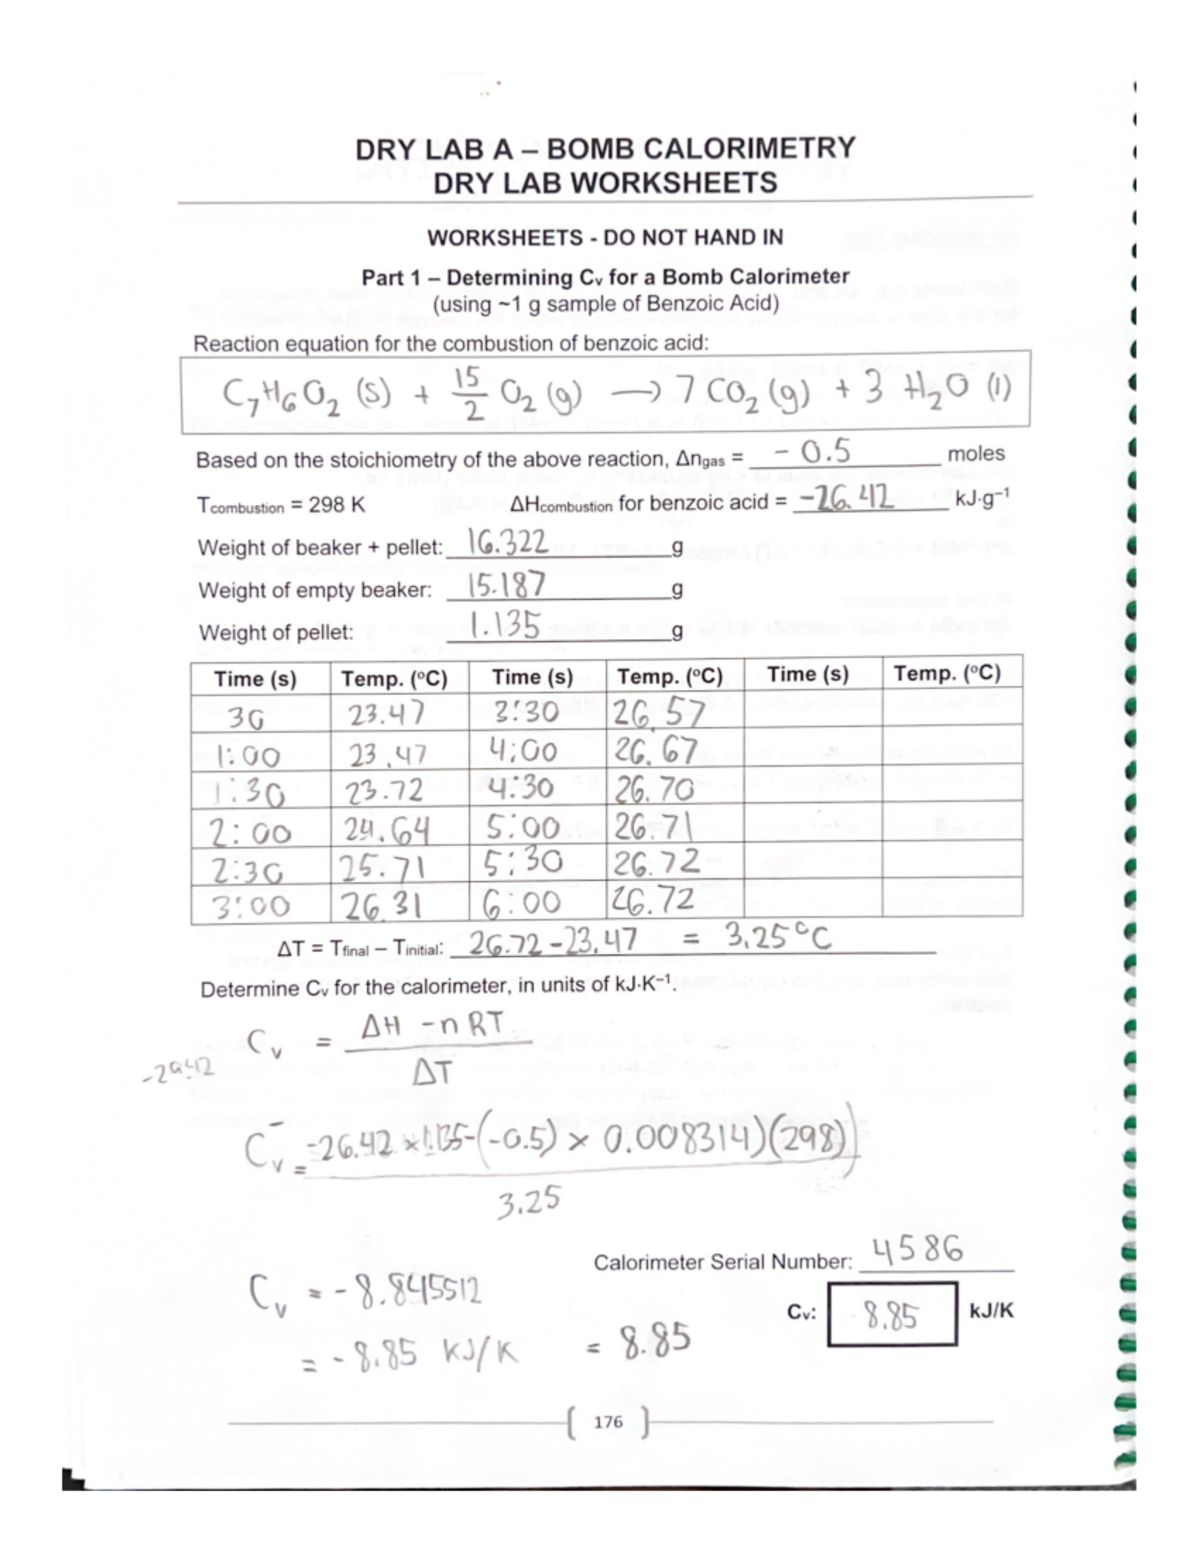 DRY LAB A – BOMB CALORIMETRY
DRY LAB WORKSHEETS
WORKSHEETS - DO NOT HAND IN
Part 1 – Determining Cv for a Bomb Calorimeter
(using ~1 g sample of Benzoic Acid)
Reaction equation for the combustion of benzoic acid:
C₇H₆O₂ (s) + 15/2 O₂ (g) → 7 CO₂ (g) + 3 H₂O (l)
Based on the stoichiometry of the above reaction, Δngas = - 0.5 moles
Tcombustion = 298 K ΔHcombustion for benzoic acid = -26.42 kJ·g⁻¹
Weight of beaker + pellet: 16.322 g
Weight of empty beaker: 15.187 g
Weight of pellet: 1.135 g
Time (s) Temp. (°C) Time (s) Temp. (°C) Time (s) Temp. (°C)
30 23.47 3:30 26.57
1:00 23.47 4:00 26.67
1:30 23.72 4:30 26.70
2:00 24.64 5:00 26.71
2:30 25.71 5:30 26.72
3:00 26.31 6:00 26.72
ΔT = Tfinal – Tinitial: 26.72 - 23.47 = 3.25°C
Determine Cv for the calorimeter, in units of kJ·K⁻¹.
Cv = ΔH - nRT
ΔT
-29.42
Cv = -26.42 × 1.135 - (-0.5) × 0.008314)(298))
3.25
Calorimeter Serial Number: 4586
Cv = - 8.845512
Cv: 8.85 kJ/K
= - 8.85 kJ/K = 8.85
176